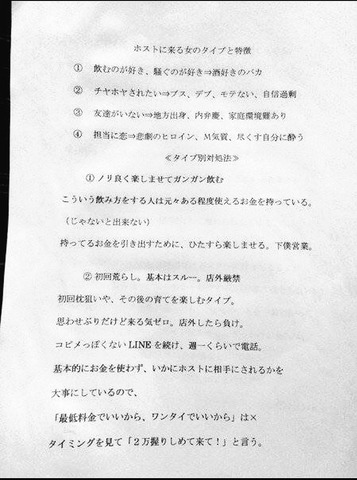 ホストに来る女のタイプと特徴
① 飲むのが好き、騒ぐのが好き⇒酒好きのバカ
② チヤホヤされたい⇒ブス、デブ、モテない、自信過剰
③ 友達がいない⇒地方出身、内弁慶、家庭環境難あり
④ 担当に恋⇒悲劇のヒロイン、M気質、尽くす自分に酔う
≪タイプ別対処法≫
①ノリ良く楽しませてガンガン飲む
こういう飲み方をする人は元々ある程度使えるお金を持っている。
（じゃないと出来ない）
持ってるお金を引き出すために、ひたすら楽しませる。下僕営業。
② 初回荒らし。基本はスルー。店外厳禁
初回枕狙いや、その後の育てを楽しむタイプ。
思わせぶりだけど来る気ゼロ。店外したら負け。
コピメっぽくないLINEを続け、週一くらいで電話。
基本的にお金を使わず、いかにホストに相手にされるかを
大事にしているので、
「最低料金でいいから、ワンタイでいいから」は×
タイミングを見て「２万握りしめて来て！」と言う。